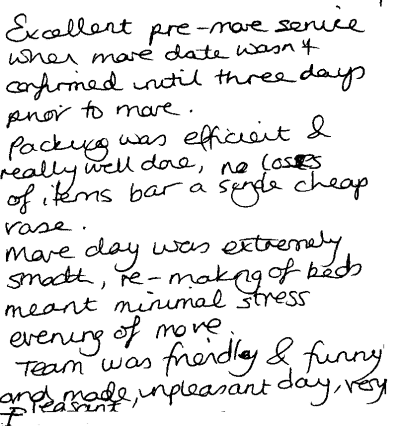 Excellent pre-move service
when move date wasn't
confirmed until three days
prior to move.
Packing was efficient &
really well done, no losses
of items bar a single cheap
vase.
Move day was extremely
smooth, re-making of beds
meant minimal stress
evening of move.
Team was friendly & funny
and made, unpleasant day, very
pleasant